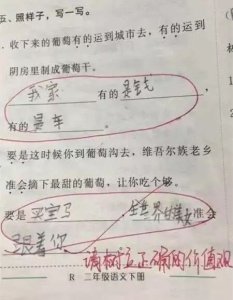 五、照样子，写一写。
1.收下来的葡萄有的运到城市去，有的运到
阴房里制成葡萄干。
我家 有的是钱
有的是车。
要是这时候你到葡萄沟去，维吾尔族老乡
准会摘下最甜的葡萄，让你吃个够。
要是买宝马，全世界的美女准会
跟着你
请树立正确的价值观
R 二年级语文下册